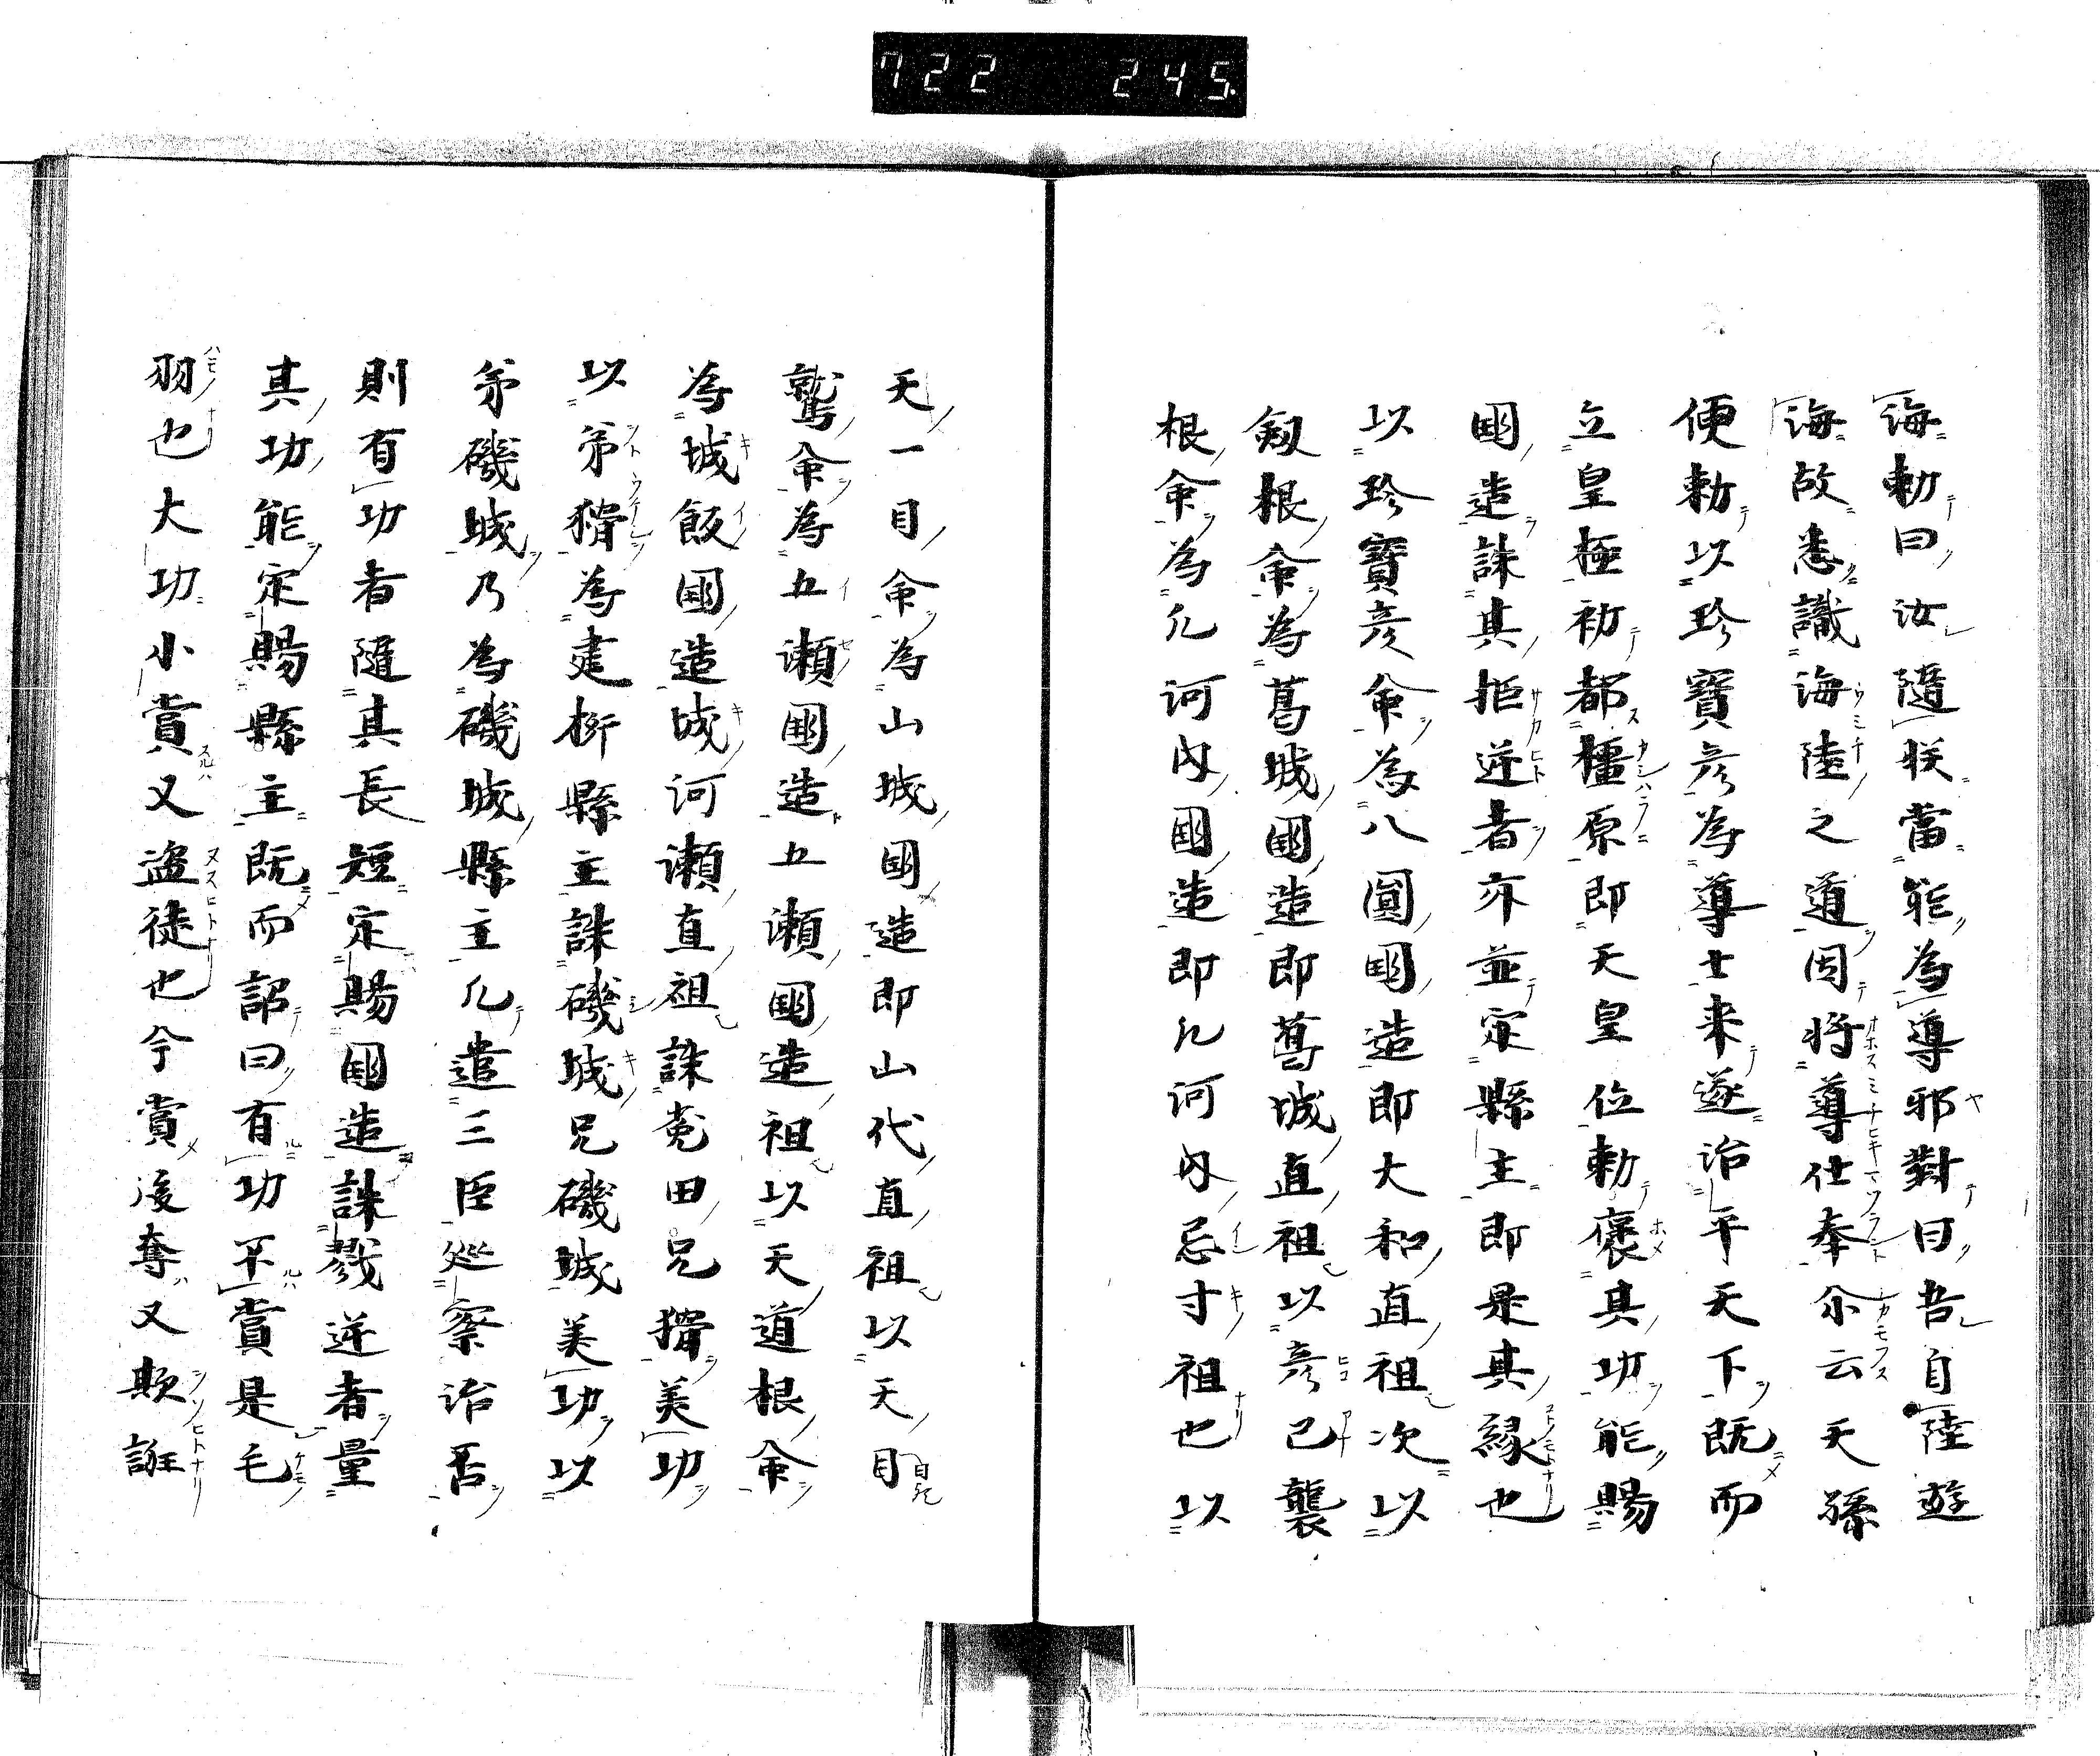 722 245
海勅曰汝隨朕當能為導邪對曰吾自陸遊
海故悉識海陸之道因将導仕奉尒云天孫
便勅以珍寶彦為導士来遂治平天下既而
立皇極初都橿原即天皇位勅褒其功能賜
國造誅其拒逆者亦並定縣主即是其縁也
以珍寶彦命為八圓國造即大和直祖次以
剱根命為葛城國造即葛城直祖以彦己襲
根命為凡河内國造即凡河内忌寸祖也以
天一目命為山城國造即山代直祖以天目
鷲命為五瀬國造五瀬國造祖以天道根命
為城飯國造城河瀬直祖誅菟田兄猾美功
以弟猾為建桁縣主誅磯城兄磯城美功以
弟磯城乃為磯城縣主凡遣三臣巡察治否
則有功者隨其長短定賜國造誅戮逆者量
其功能定賜縣主既而詔曰有功不賞是毛
羽也大功小賞又盗徒也今賞後奪又欺誑